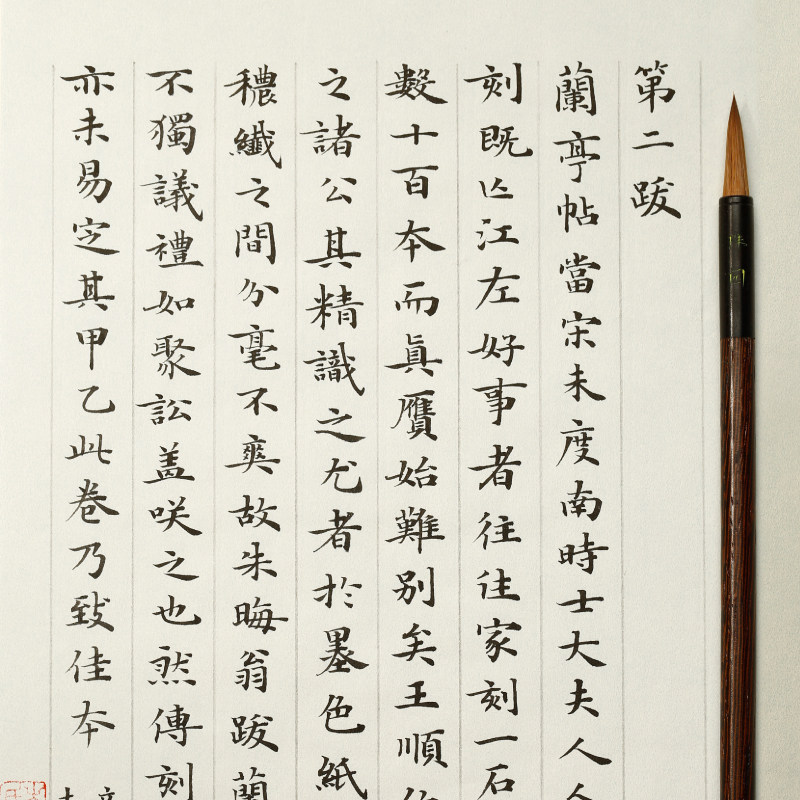 第二跋
蘭亭帖當宋未度南時士大夫人人
刻既亡江左好事者往徃家刻一石
數十百本而眞贋始難别矣王順
之諸公其精識之尤者於墨色紙
穠纖之間分毫不爽故朱晦翁跋蘭
不獨議禮如聚訟盖咲之也然傳刻
亦未易定其甲乙此卷乃致佳本